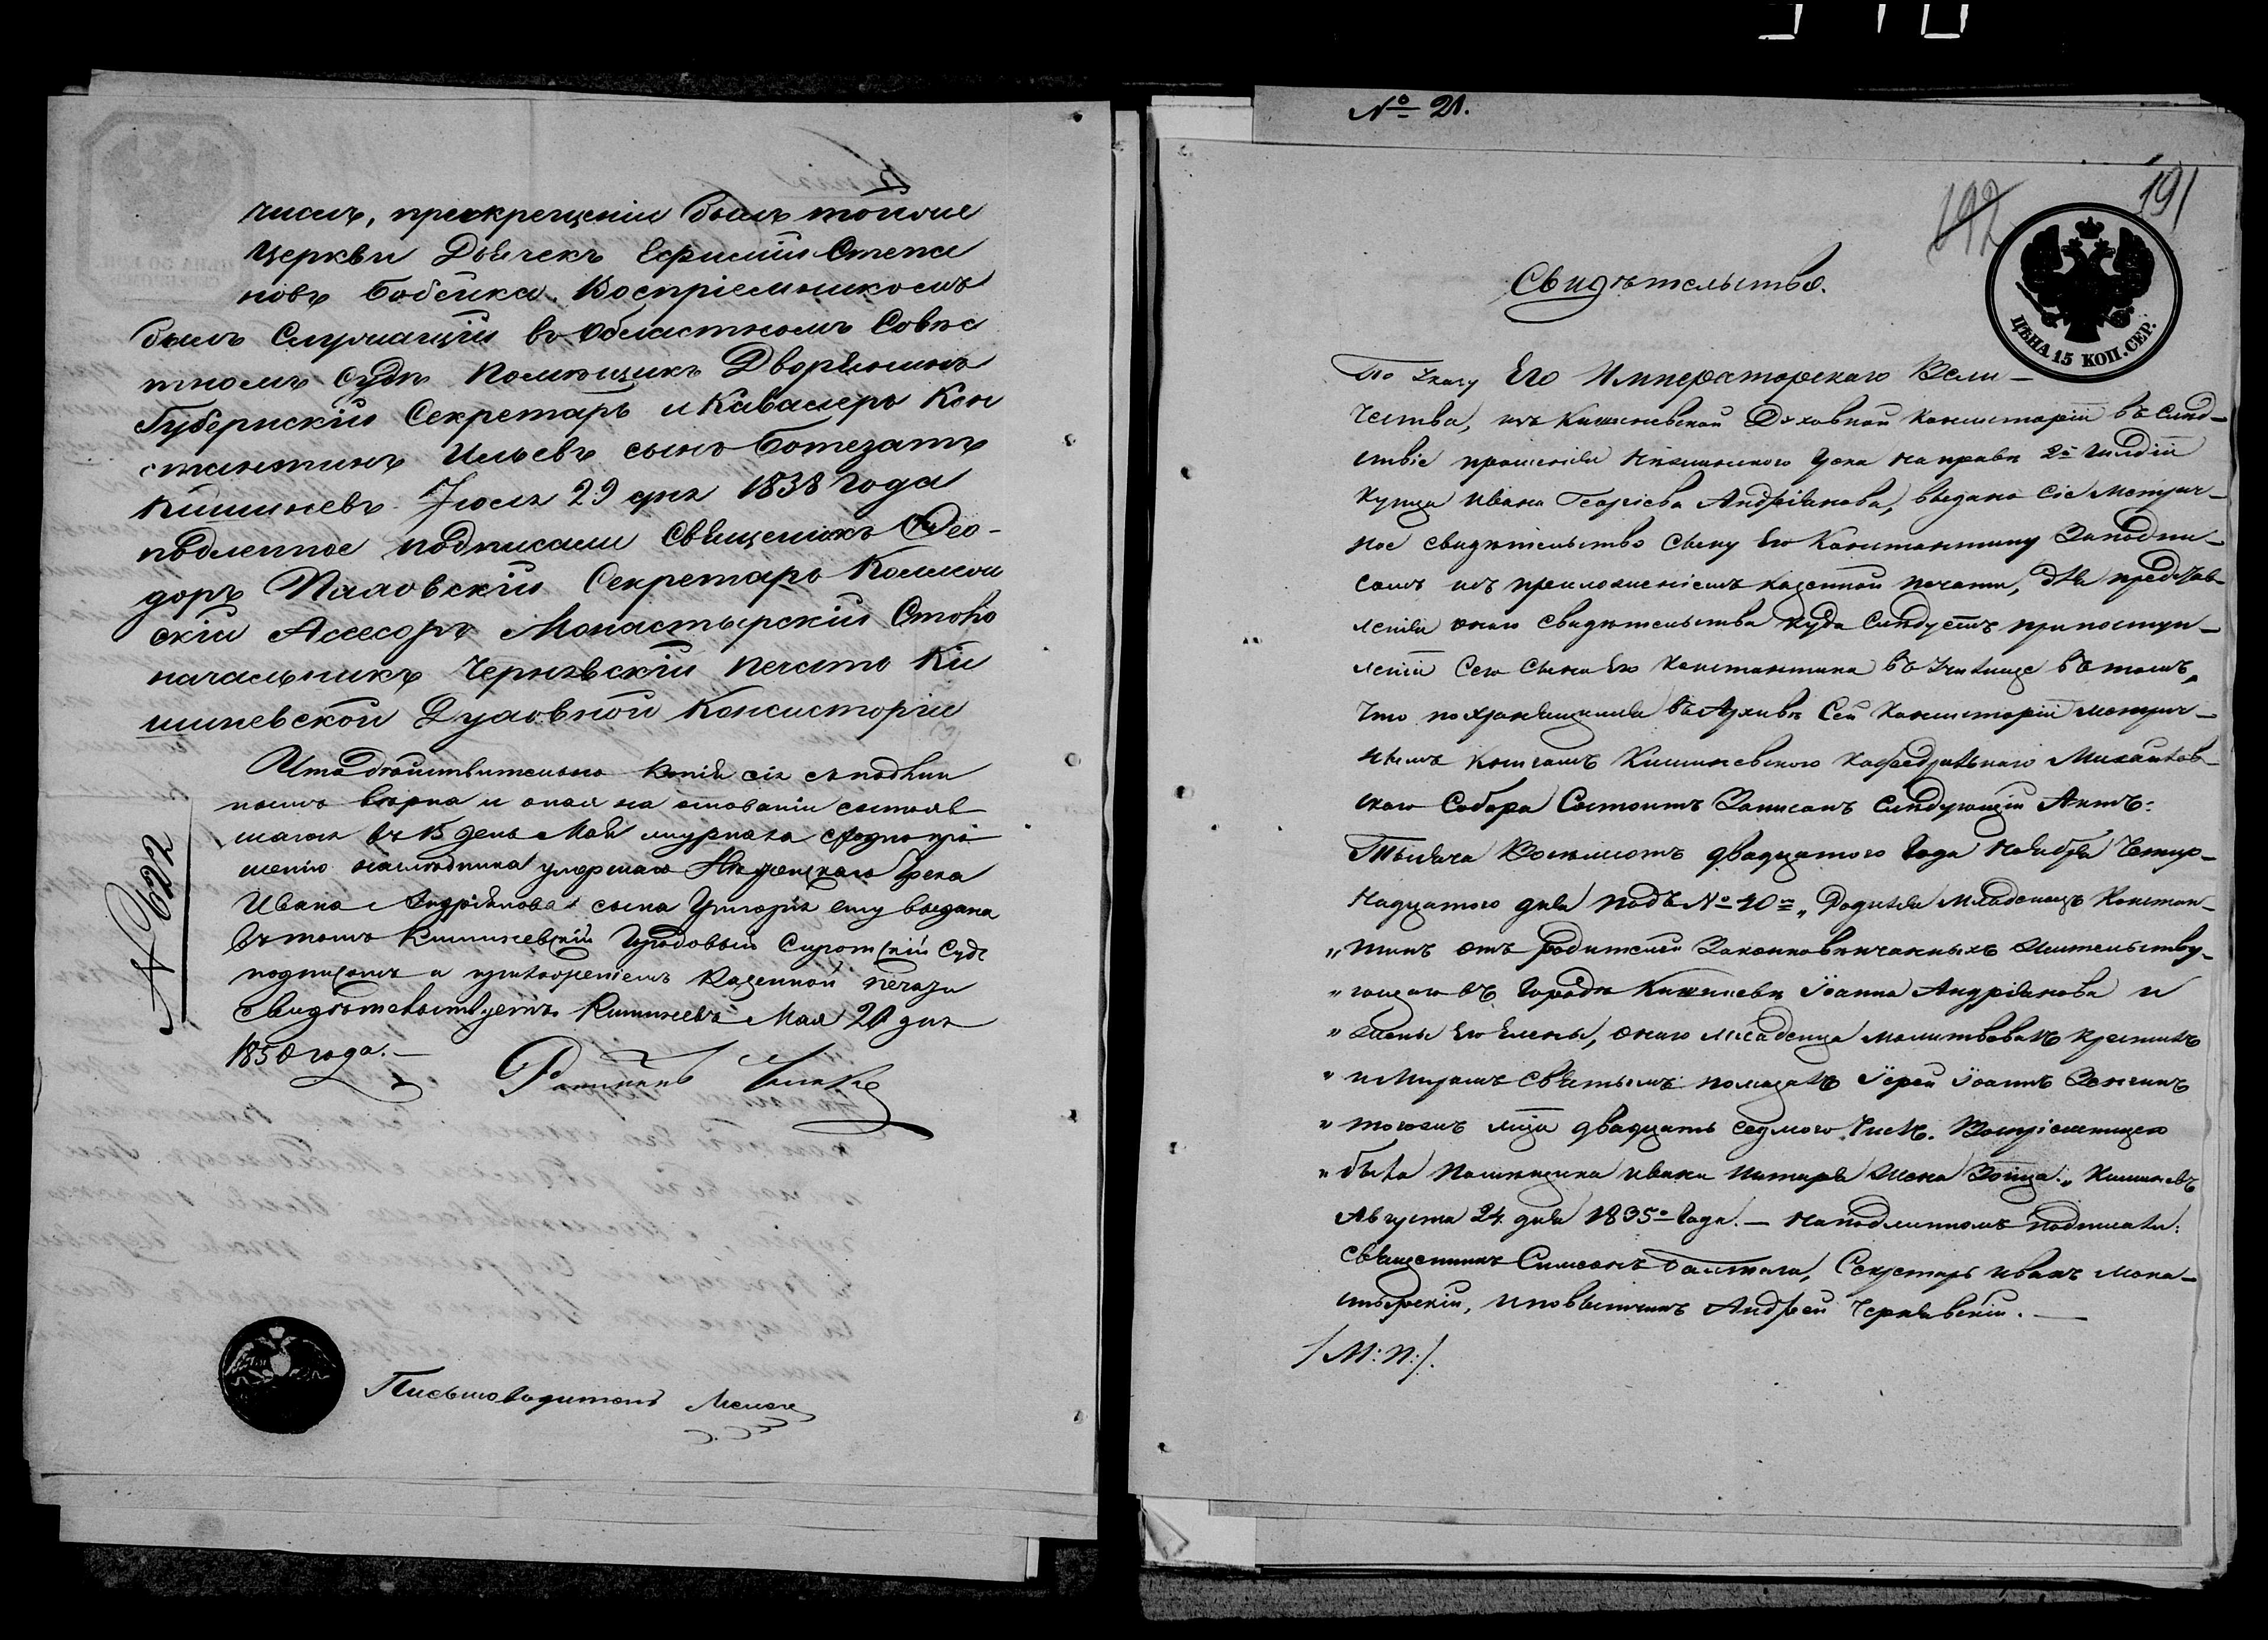 числъ, прикрещеніи былъ тойже
Церкви Дьячекъ Ефимій Степа
новъ Бобейка. Воспріемникомъ
былъ Служащій въ Областномъ Совѣс
тномъ Судѣ Помѣщикъ Дворянинъ
Губернскій Секретарь и Кавалеръ Кон
стантинъ Ильевъ сынъ Ботезатъ
Кишиневъ. Іюля 29 дня 1838 года
подленное подписали Священикъ Фео-
доръ Секретарь Коллеж
скій Асесоръ Монастырскій Столо
начальникъ Чернявскій печать Ки
шиневской Духовной Консисторіи
Что дѣйствительно Копія сія съ подлин
нымъ вѣрна и оная на основаніи состояв
шагося въ 15 день Мая журнала согласно про
шенію наслѣдника умершаго Нѣжинскаго Грека
Ивана Андріянова сына Григорія ему выдана
въ томъ Кишиневскій Городовый Сиротскій Судъ
подписомъ и приложеніемъ Казенной печати
Свидѣтельствуетъ. Кишиневъ Мая 20 дня
1850 года.—
N 622
Письмоводитель
№ 21.
192 191
ЦѢНА 15 КОП. СЕР.
Свидѣтельство.
По Указу Его Императорскаго Вели-
чества, изъ Кишиневской Духовной Консисторіи въ Слѣд-
ствіе прошенія Нѣжинского Грека на правѣ 2й Гилдіи
Купца Ивана Георгіева Андріянова, выдано Сіе Метрич-
ное свидѣтельство Сыну Его Константину За подпи-
сомъ и съ приложеніемъ казенной печати, для представ-
ленія онаго свидѣтельства куда Слѣдуетъ при поступ-
леніи Сего Сына Его Константина въ Училище въ томъ,
Что по хранящимся въ Архивѣ Сей Консисторіи метрич-
нымъ Книгамъ Кишиневского Кафедральнаго Михайлов-
ского Собора Состоитъ Записанъ Слѣдующій Актъ:
Тысяча Восемьсотъ двадцатого Года Ноября Четыр-
надцатого дня подъ № 10м „Родился Младенецъ Констан-
„тинъ отъ родителей Законновѣнчанныхъ Жительству-
„ющаго въ Городѣ Кишиневѣ Іоанна Андріянова и
„жены Его Елены, онаго младенца молитвовалъ крестилъ
„и Миромъ Святымъ помазалъ Іерей Іоаннъ
„тогожъ мца двадцать седмого Числ. Воспріемницею
„была Помѣщика Ивана Жена Зоица.„ Кишиневъ
Августа 24 дня 1835о Года.— На подлинномъ подписали:
Священникъ Симеонъ Секретарь Иванъ Мона-
стырскій, и повытчикъ Андрей Чернявскій.—
/М:П:/.